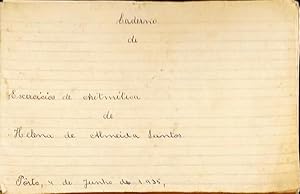 Caderno
de
Exercicios de Aritmética
de
Helena de Almeida Santos
Pôrto, 4 de Junho de 1935,